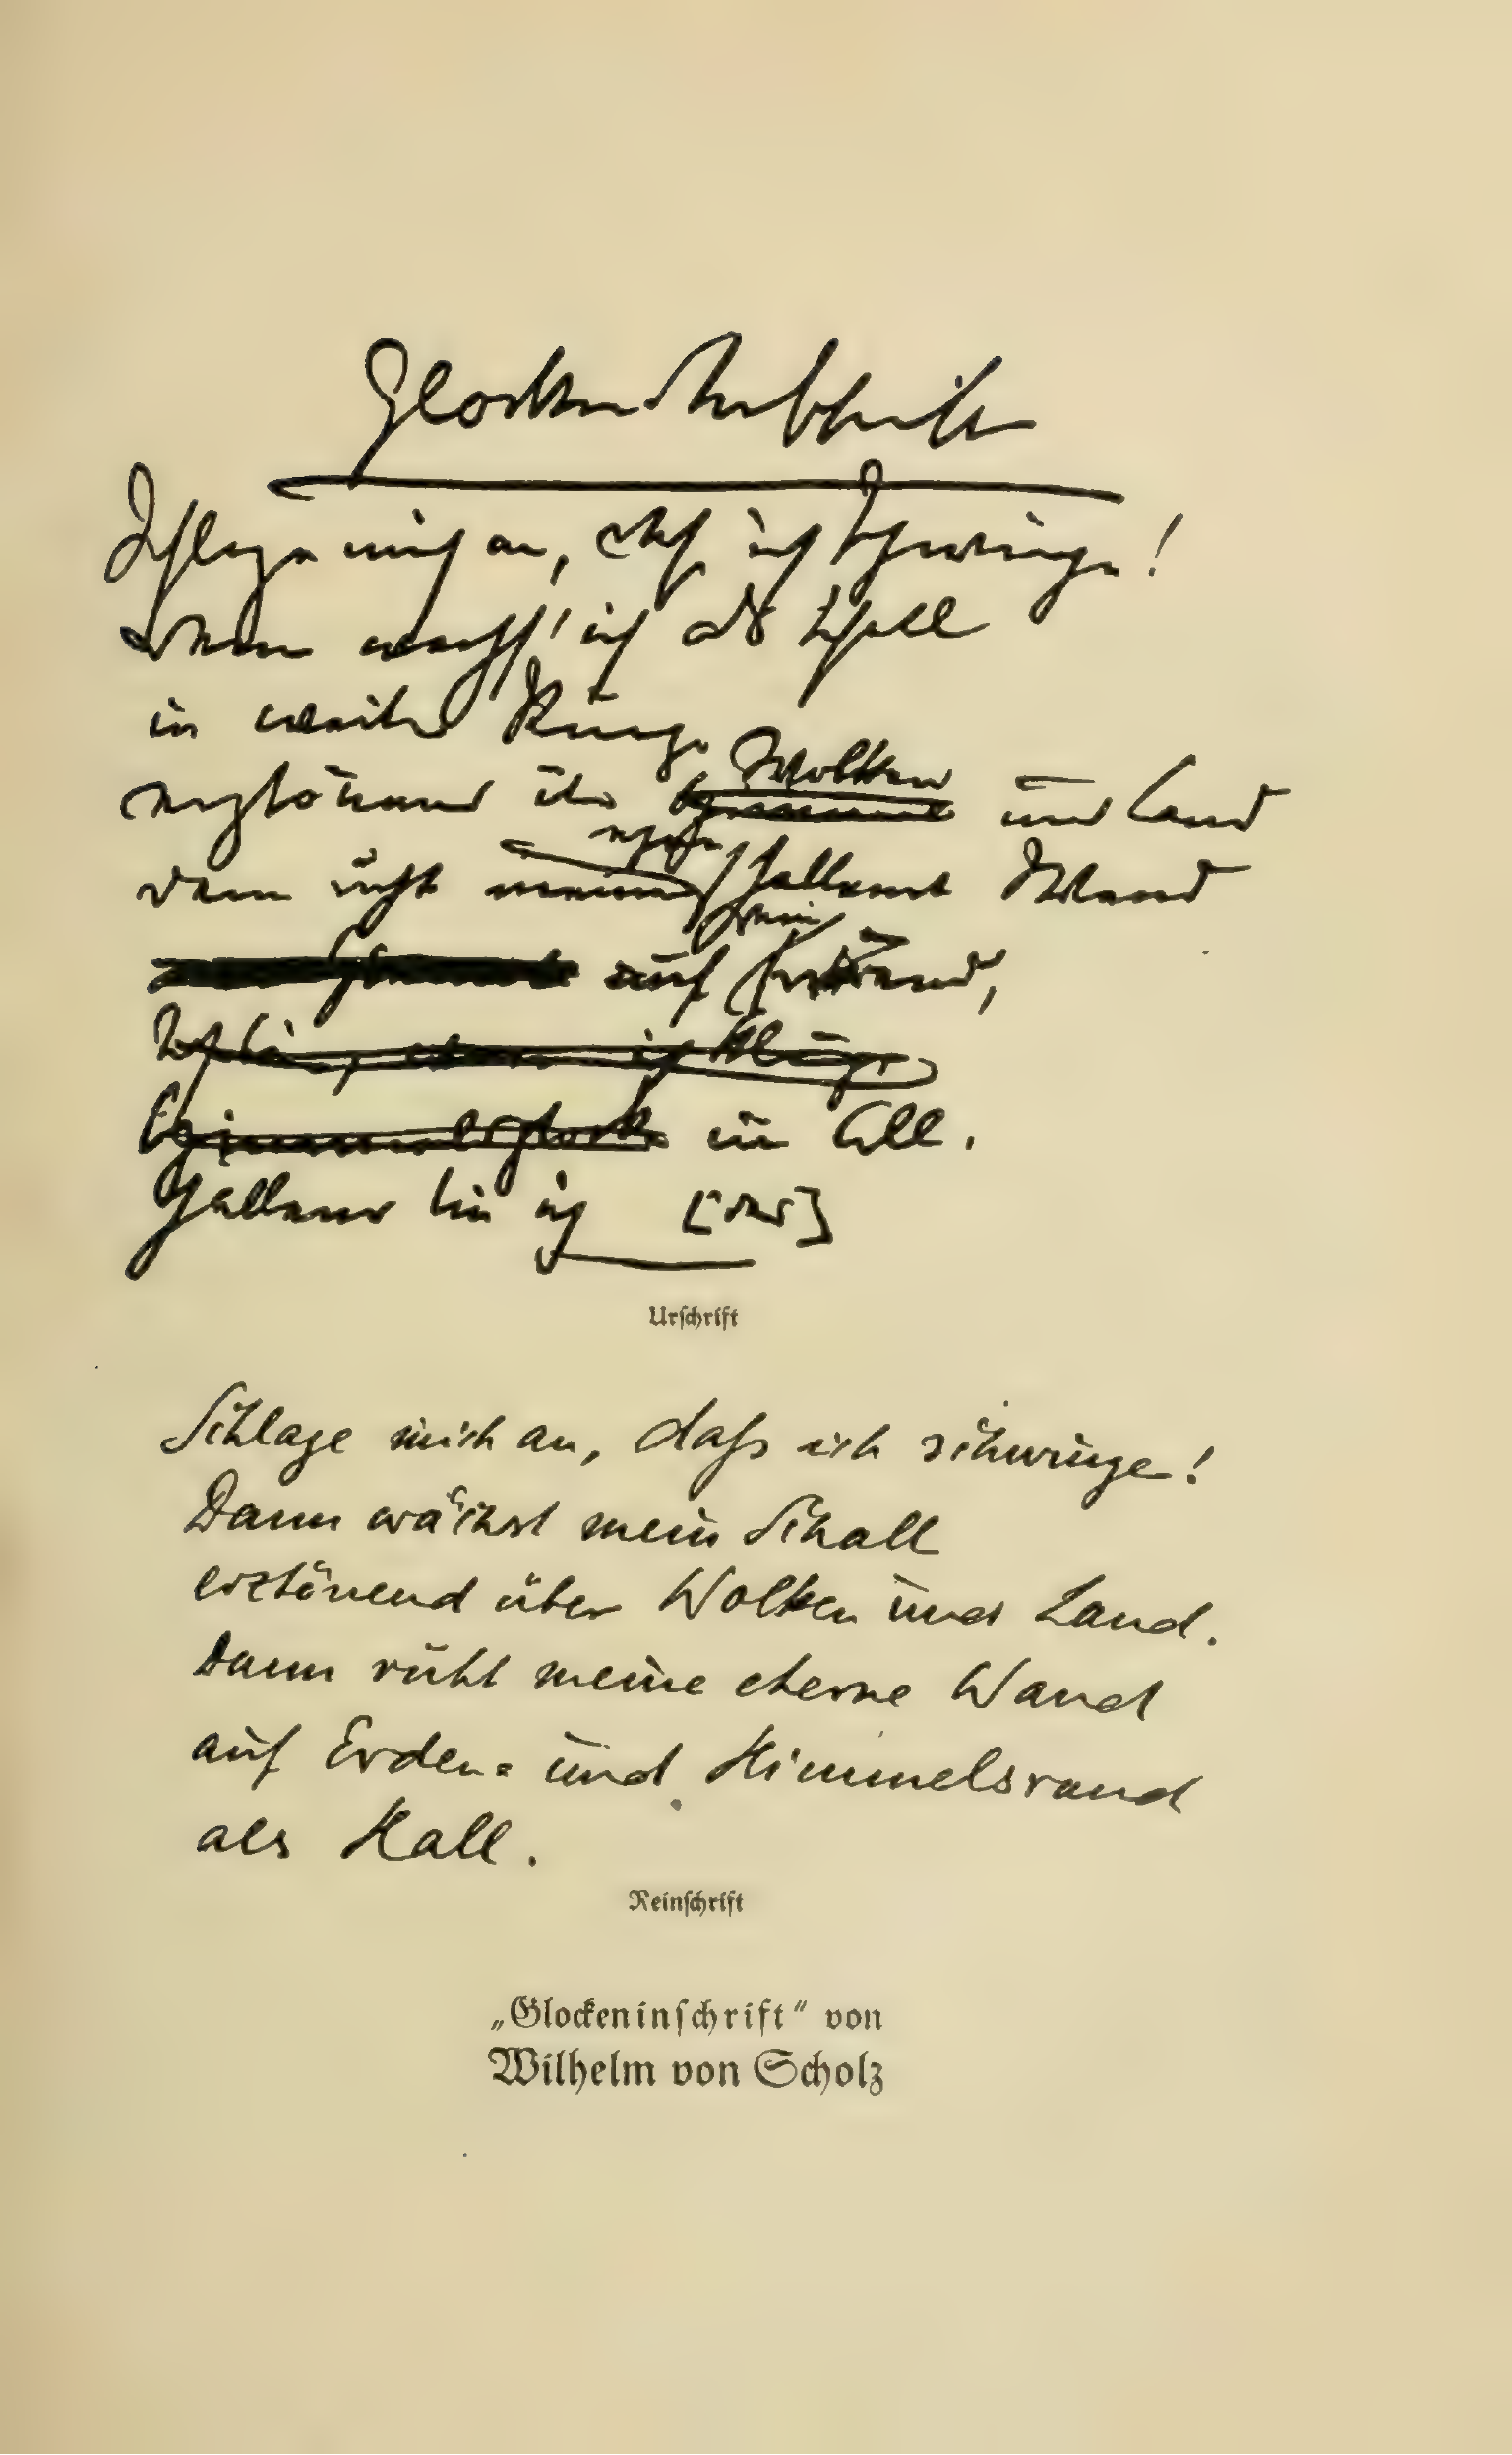 Schlage mich an, daß ich schwinge!
Dann wachs' ich als Schall
in weite Ringe
erztönend über Wolken und Land
dann ruht meine Wand
auf
im All.
hallend bin ich
Urschrift
Schlage mich an, daß ich schwinge!
Dann wächst mein Schall
erztönend über Wolken und Land.
Dann ruht meine eherne Wand
auf Erden= und Himmelsrand
als Hall.
Reinschrift
„Glockeninschrift“ von
Wilhelm von Scholz